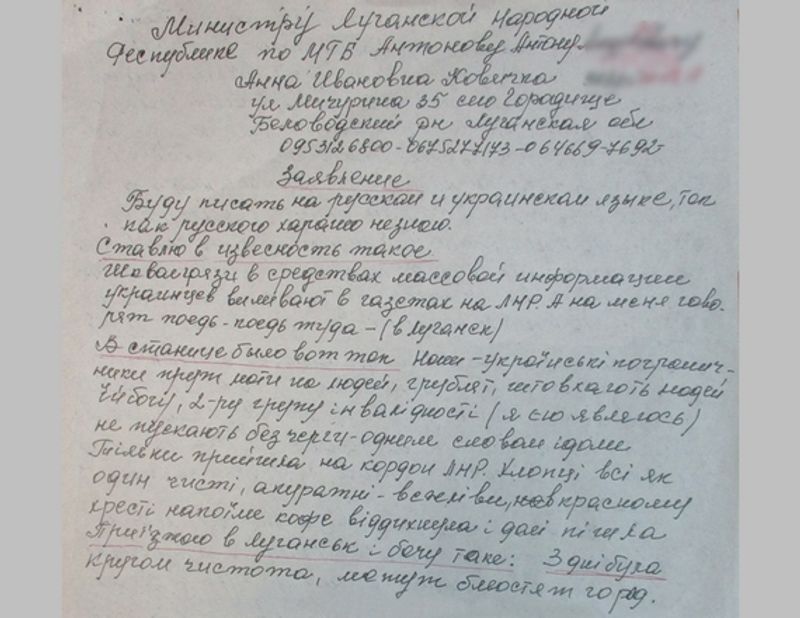 Министру Луганской Народной
Республике по МТБ Антонову Антону
Анна Ивановна Ховичка
ул Мичурина 35 село Городище
Беловодский рн Луганская обл
0953126800-0675277173-064669-7692
Заявление
Буду писать на русском и украинском языке, так
как русского харашо незнаю.
Ставлю в извесность такое
грязи в средствах массовой информации
украинцев виливают в газетах на ЛНР. А на меня гово-
рят поедь-поедь туда-(в Луганск)
В станице было вот так наши-українські погранич-
ники прут на людей, грублят, штовхають людей
їй богу, 2-ру групу інвалідності (я єю являюсь)
не пускають без черги-одним словом ідоли
Тільки прийшла на кордон ЛНР. Хлопці всі як
один чисті, акуратні-вежліви, в красному
хресті напоїли кофе віддихнула і далі пішла
Приїзжаю в Луганськ і бачу таке: 3 дні була
кругом чистота, метут блюстят город.